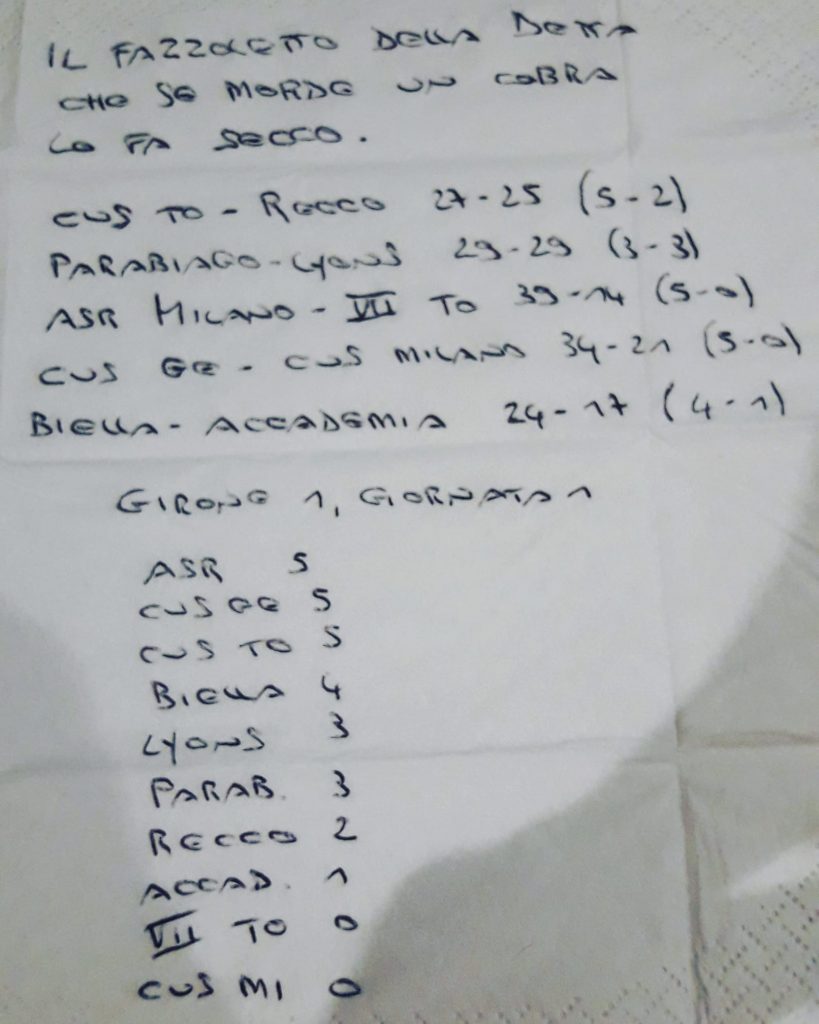 IL FAZZOLETTO DELLA DETTA
CHE SE MORDE UN COBRA
LO FA SECCO.
CUS TO - RECCO 27-25 (5-2)
PARABIAGO-LYONS 29-29 (3-3)
ASR MILANO - VII TO 39-14 (5-0)
CUS GE - CUS MILANO 34-21 (5-0)
BIELLA - ACCADEMIA 24-17 (4-1)
GIRONE 1, GIORNATA 1
ASR 5
CUS GE 5
CUS TO 5
BIELLA 4
LYONS 3
PARAB. 3
RECCO 2
ACCAD. 1
VII TO 0
CUS MI 0